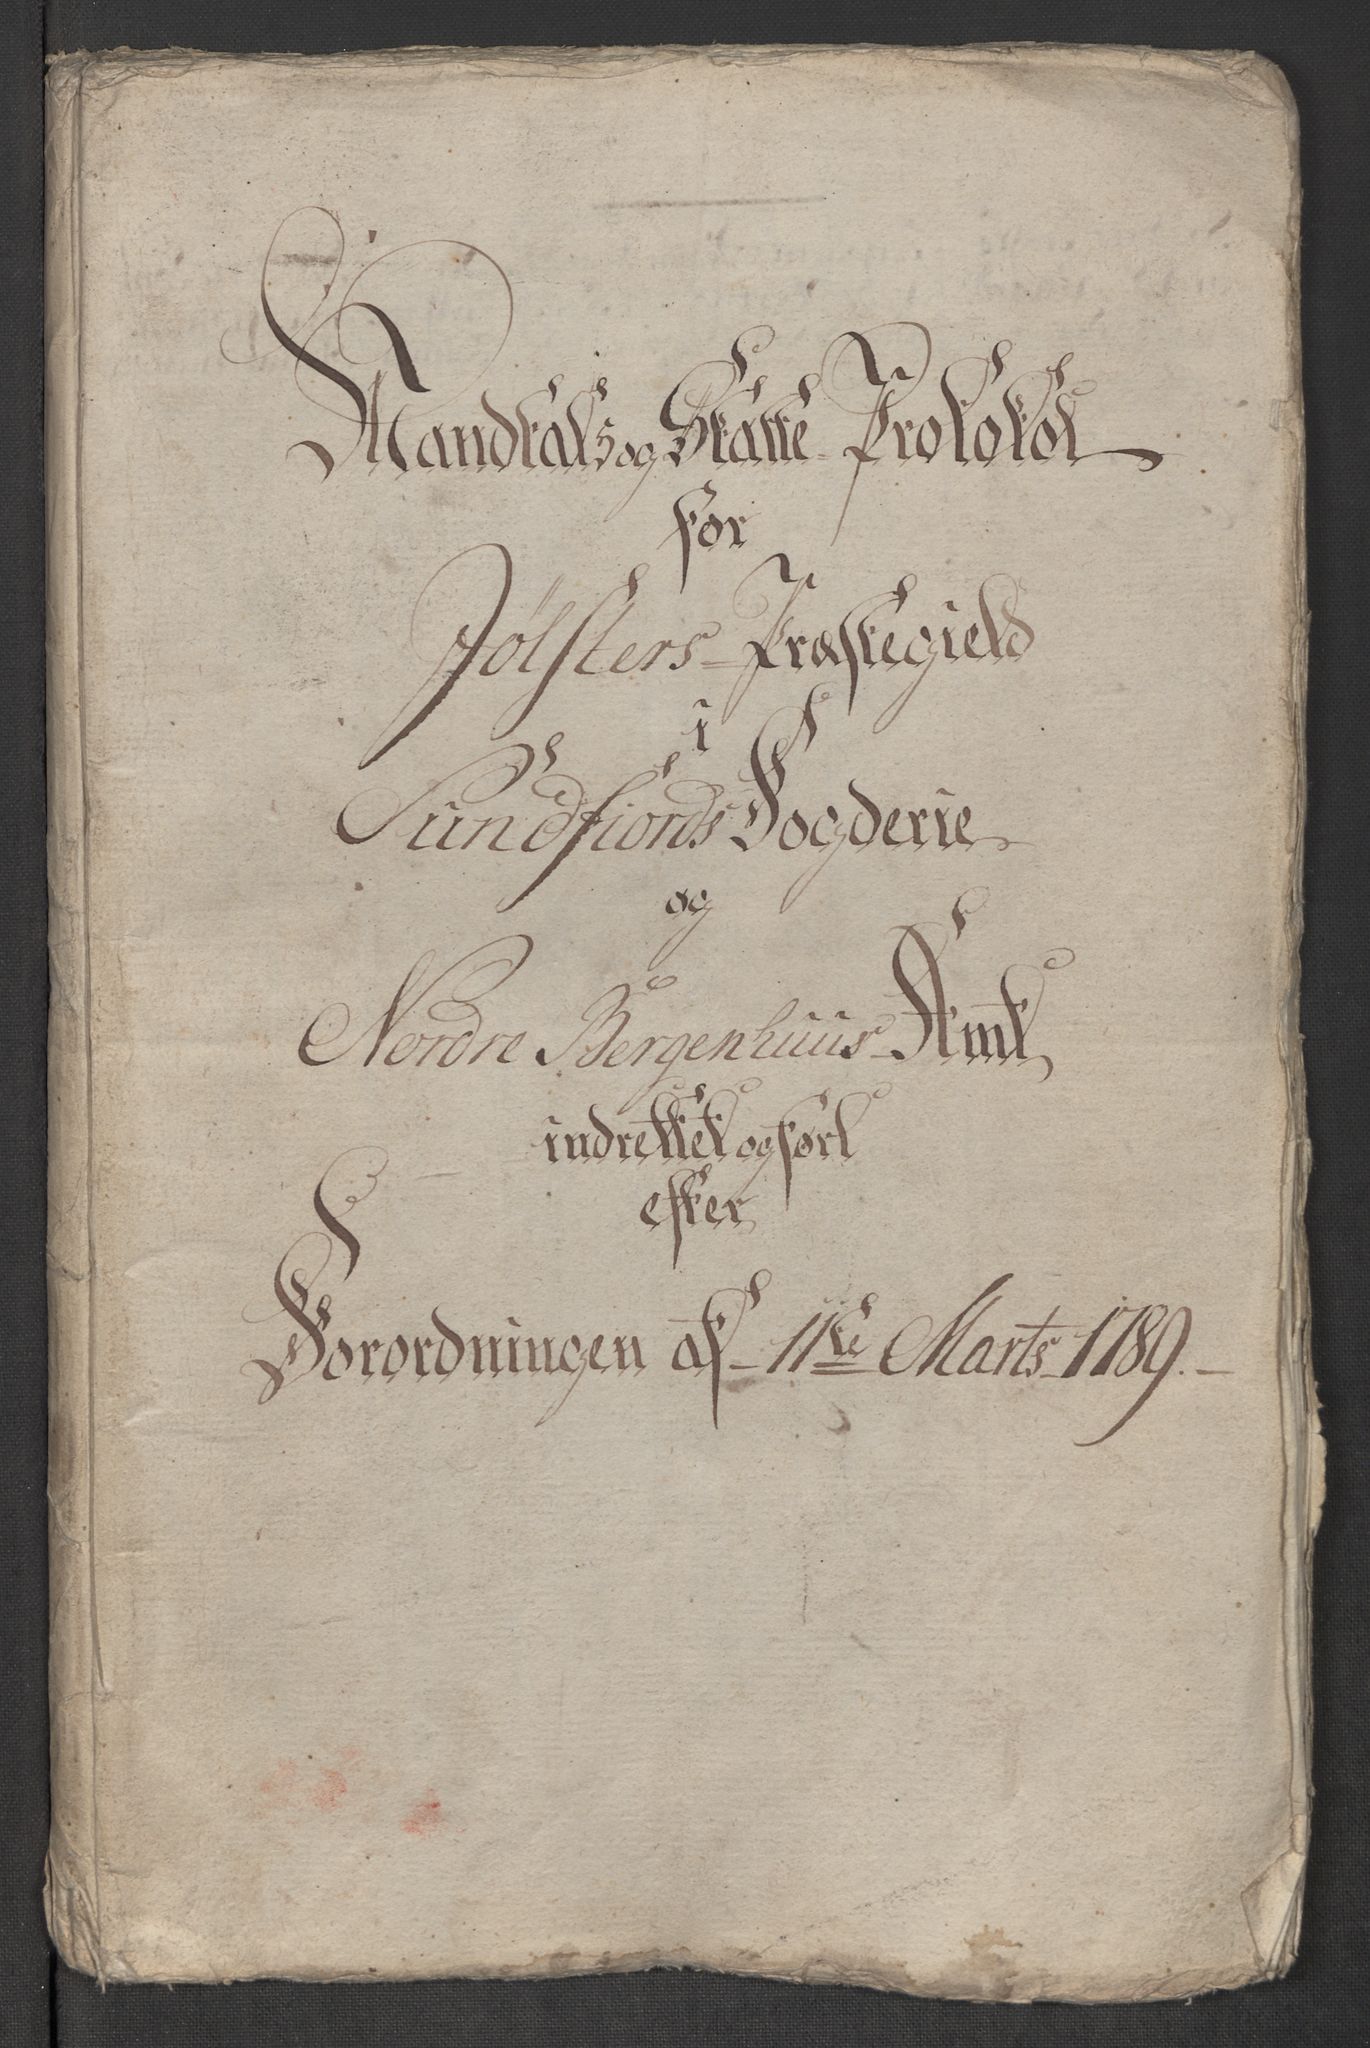 Mandtals og Skatte-Protokol
for
Jölsters-Præstegield
i
Sundfiords Fogderie
og
Nordre Bergenhuus-Amt
indrettet og ført
efter
Forordningen af 11te Marts 1789.